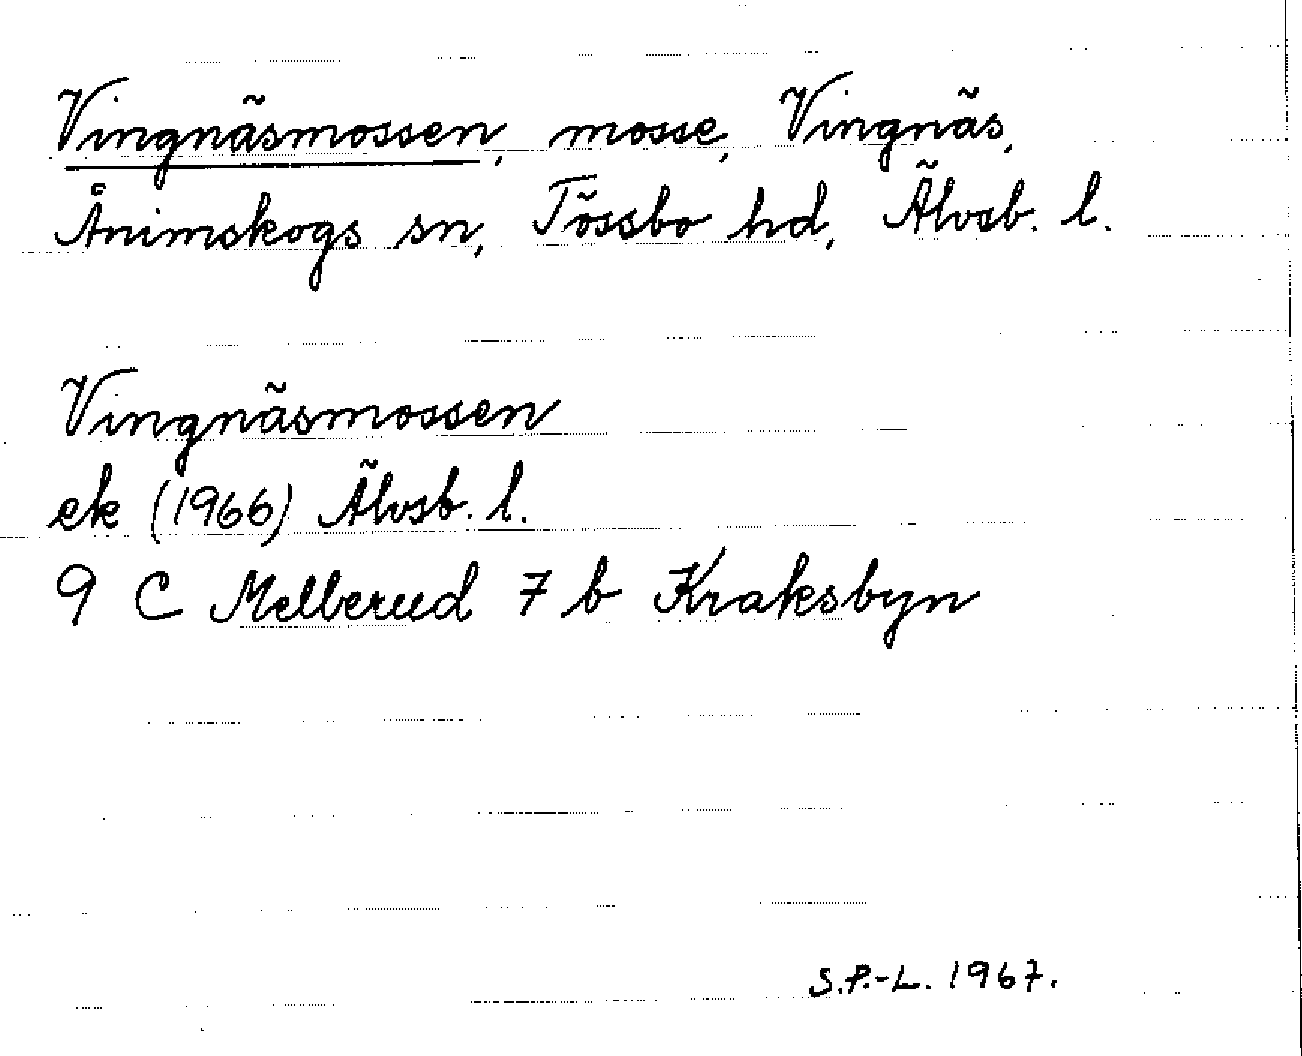 Vingnäsmossen, mosse, Vingnäs,
Ånimskogs sn, Tössbo hd, Älvsb. l.
Vingnäsmossen
ek (1966) Älvsb. l.
9 C Mellerud 7 b Kraksbyn
S.P.-L. 1967.